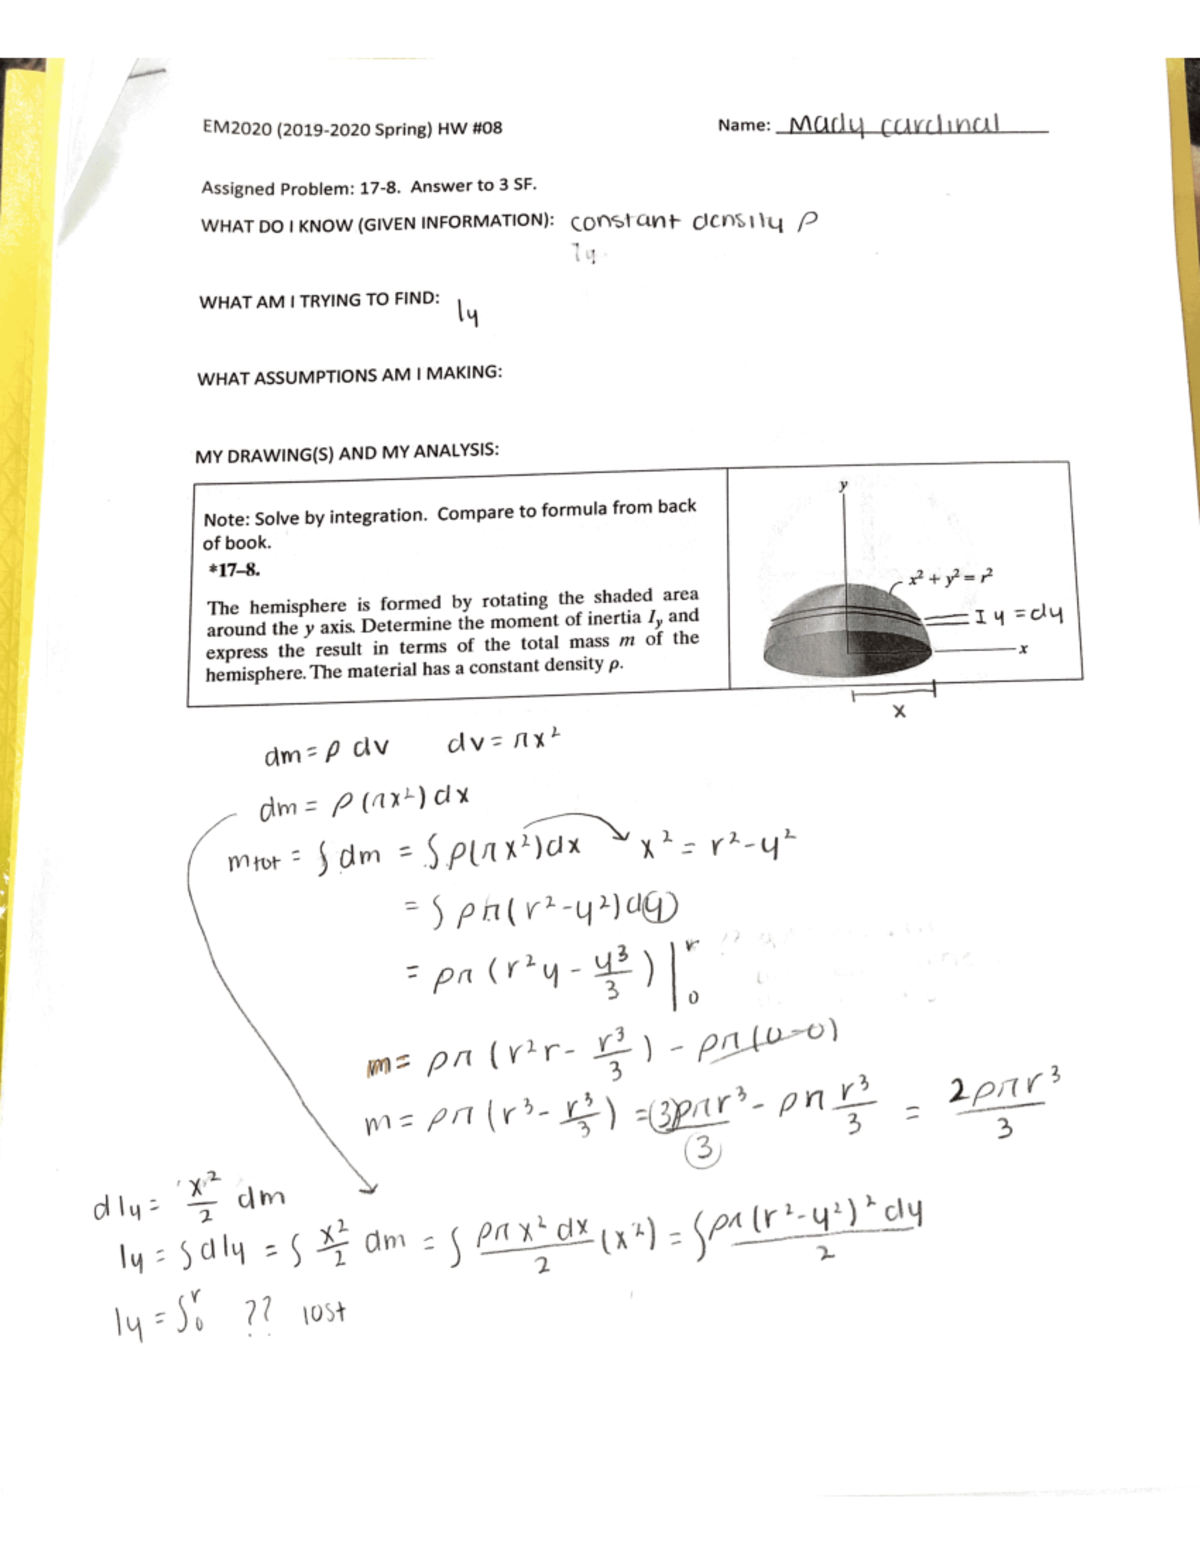 EM2020 (2019-2020 Spring) HW #08
Name: Mady Cardinal
Assigned Problem: 17-8. Answer to 3 SF.
WHAT DO I KNOW (GIVEN INFORMATION): constant density ρ
Iy
WHAT AM I TRYING TO FIND: Iy
WHAT ASSUMPTIONS AM I MAKING:
MY DRAWING(S) AND MY ANALYSIS:
Note: Solve by integration. Compare to formula from back
of book.
*17–8.
The hemisphere is formed by rotating the shaded area
around the y axis. Determine the moment of inertia I_y and
express the result in terms of the total mass m of the
hemisphere. The material has a constant density ρ.
y
x² + y² = r²
Iy = dy
x
x
dm = ρ dv   dv = πx²
dm = ρ(πx²)dx
mtot = ∫ dm = ∫ρ(πx²)dx   x² = r²-y²
= ∫ρπ(r²-y²)dy
= ρπ(r²y - y³/3)|₀ʳ
m = ρπ(r²r - r³/3) - ρπ(0-0)
m = ρπ(r³ - r³/3) = 3ρπr³/3 - ρπ r³/3 = 2ρπr³/3
dIy = x²/2 dm
Iy = ∫dIy = ∫ x²/2 dm = ∫ ρπx²dx/2 (x²) = ∫ρπ(r²-y²)²dy/2
Iy = ∫₀ʳ ?? lost